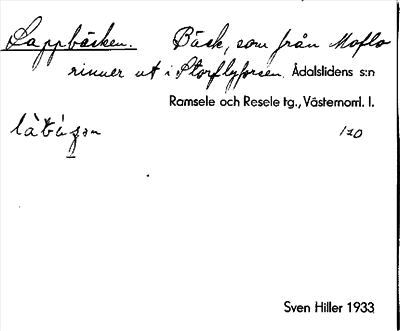 Lappbäcken. Bäck, som från Moflo
rinner ut i Storflyforsen. Ådalslidens s:n
Ramsele och Resele tg., Västernorrl. l.
120
Sven Hiller 1933